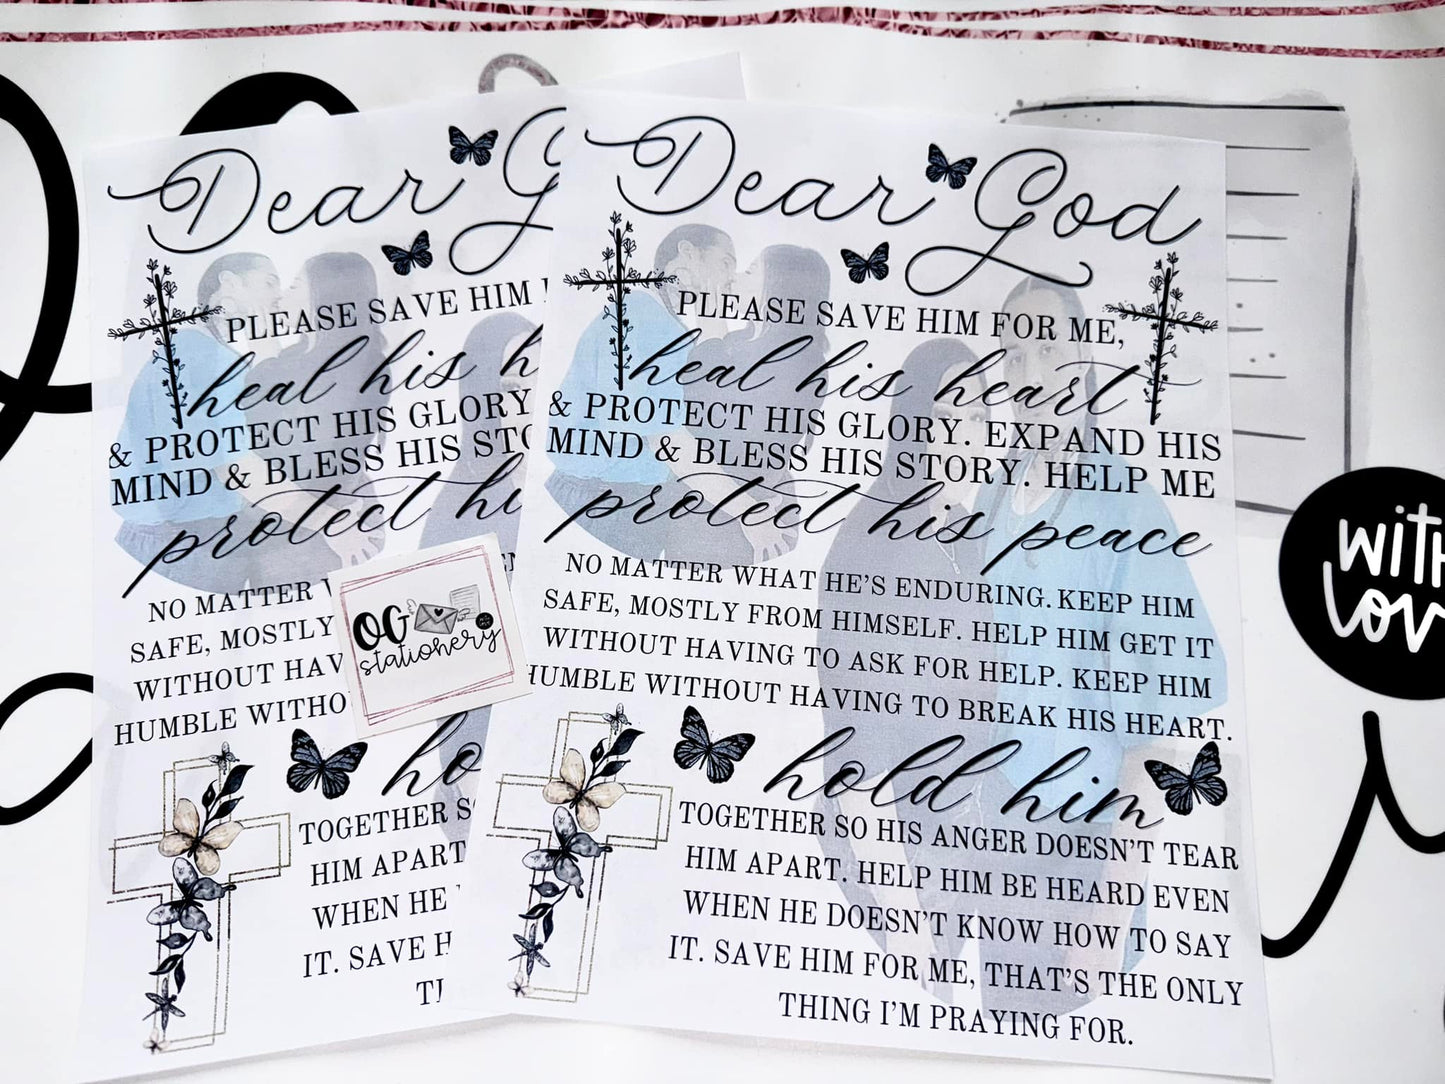 Dear G
PLEASE SAVE HIM
heal his h
& PROTECT HIS GLORY
MIND & BLESS HIS STO
protect hi
NO MATTER
SAFE, MOSTLY
WITHOUT HAV
HUMBLE WITHO
ho
TOGETHER S
HIM APART
WHEN HE
IT. SAVE H
TH
OG
stationery
Dear God
PLEASE SAVE HIM FOR ME,
heal his heart
& PROTECT HIS GLORY. EXPAND HIS
MIND & BLESS HIS STORY. HELP ME
protect his peace
NO MATTER WHAT HE'S ENDURING. KEEP HIM
SAFE, MOSTLY FROM HIMSELF. HELP HIM GET IT
WITHOUT HAVING TO ASK FOR HELP. KEEP HIM
HUMBLE WITHOUT HAVING TO BREAK HIS HEART.
hold him
TOGETHER SO HIS ANGER DOESN'T TEAR
HIM APART. HELP HIM BE HEARD EVEN
WHEN HE DOESN'T KNOW HOW TO SAY
IT. SAVE HIM FOR ME, THAT'S THE ONLY
THING I'M PRAYING FOR.
WITH
LOV